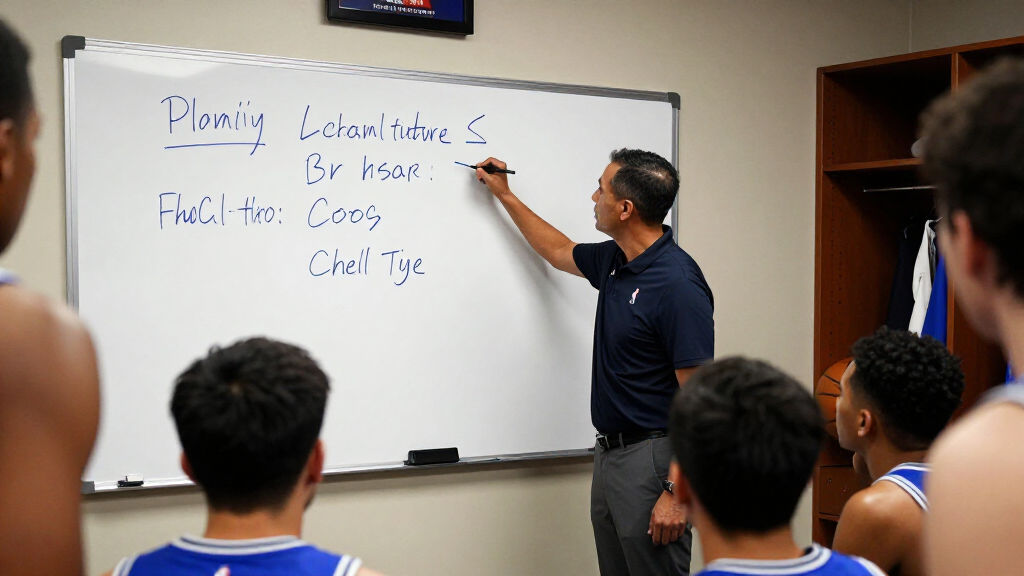 Plomiiy Lchamltuture S
Br hsar:
FhoCl-tko: Coog
Chell Tye